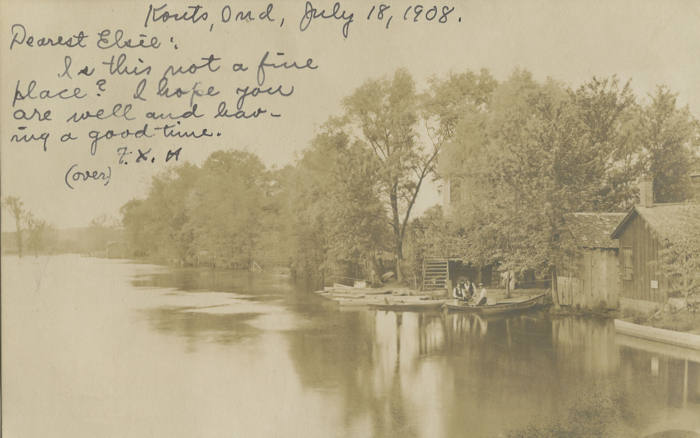 Kouts, Ond, July 18, 1908.
Dearest Elsie:
Is this not a fine
place? I hope you
are well and hav-
ing a good time.
F. X. H
(over)